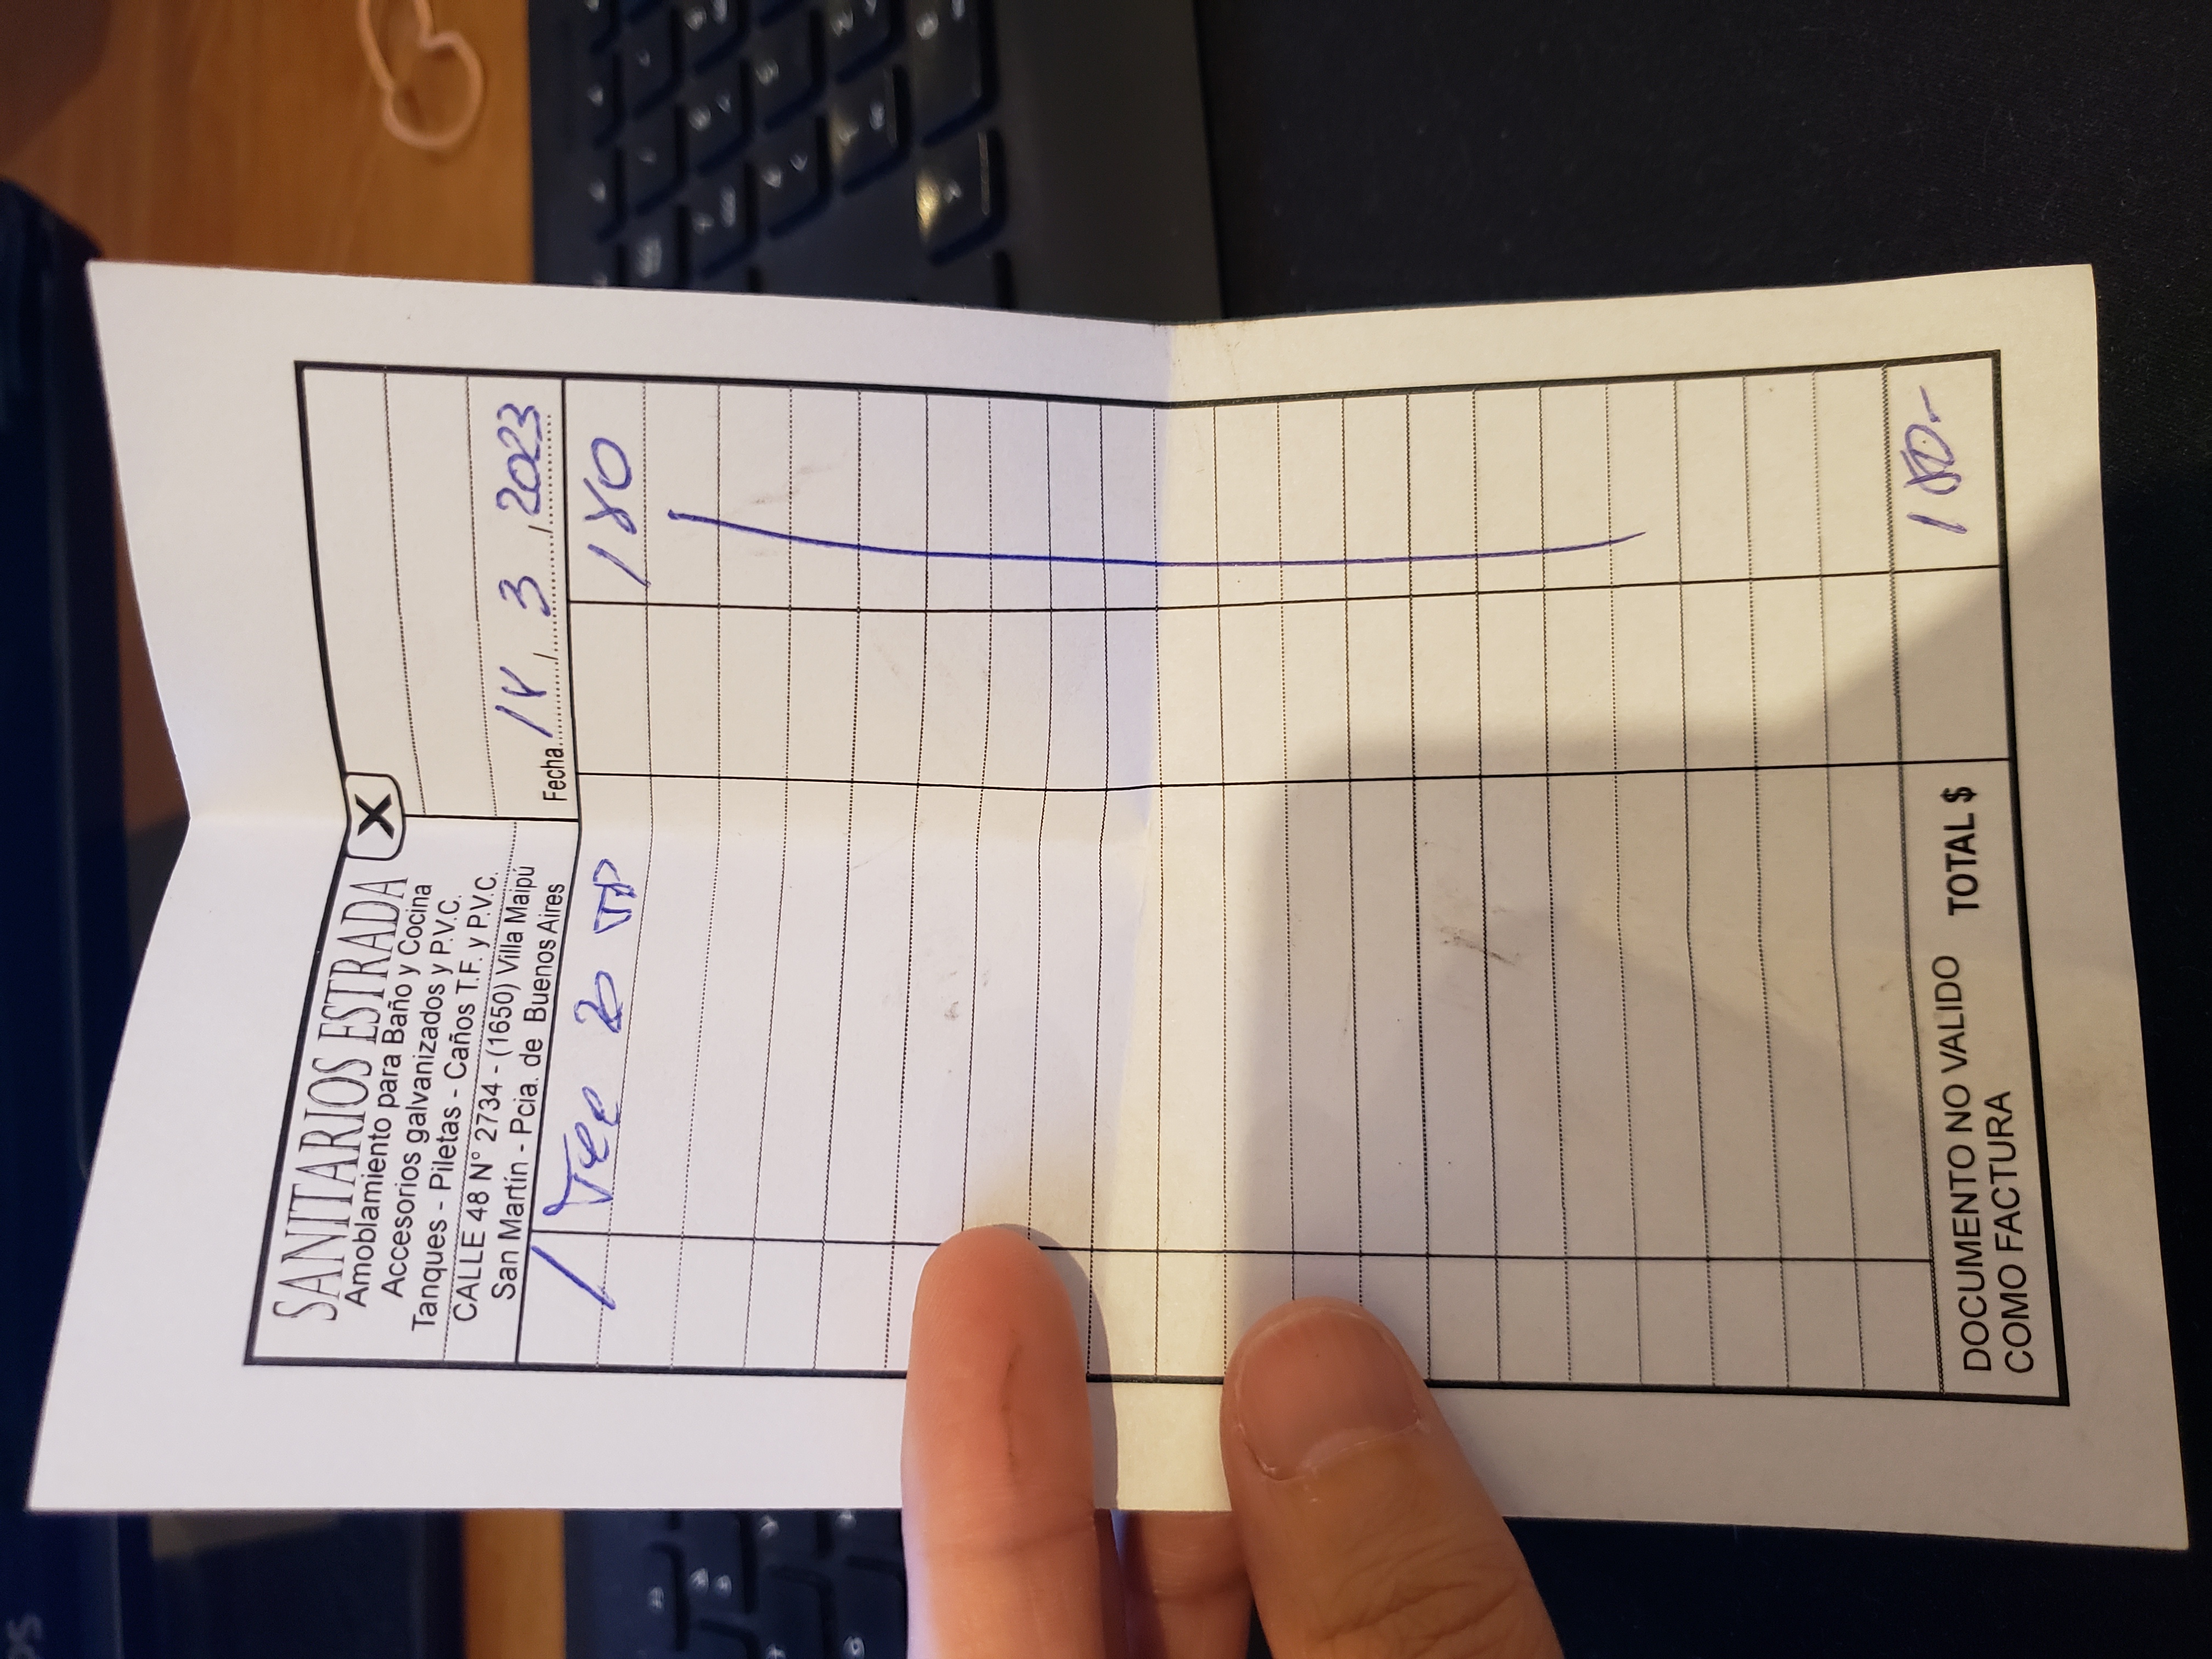 SANITARIOS ESTRADA
Amoblamiento para Baño y Cocina
Accesorios galvanizados y P.V.C.
Tanques - Piletas - Caños T.F. y P.V.C.
CALLE 48 N° 2734 - (1650) Villa Maipú
San Martín - Pcia. de Buenos Aires
X
Fecha 14 / 3 / 2023
1 Tee 20 TF 180
DOCUMENTO NO VALIDO
COMO FACTURA
TOTAL $ 180.-